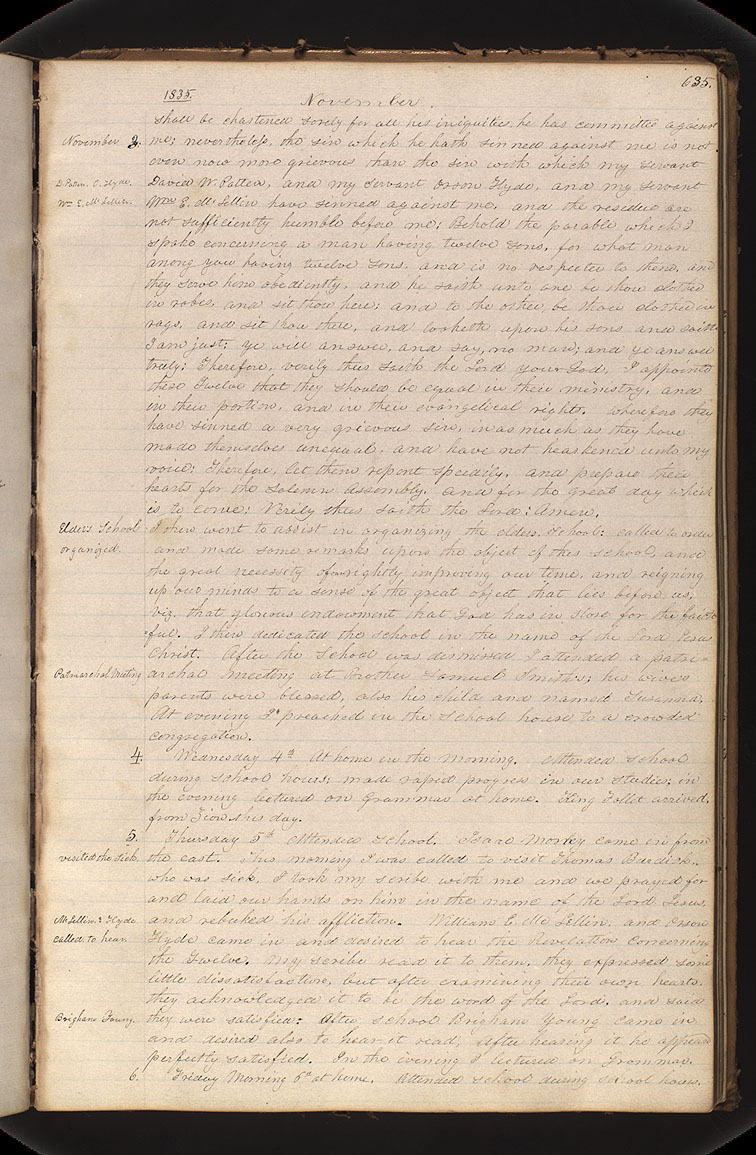 635.
1835.
November.
shall be chastened sorely for all his iniquities, he has committed against
November 3. me; nevertheless, the sin which he hath sinned against me is not
even now more grievous than the sin with which my servant
D. Patten. O. Hyde. David W. Patten, and my servant Orson Hyde, and my servant
Wm E. McLellin. Wm E. McLellin have sinned against me, and the residue are
not sufficiently humble before me; Behold the parable which I
spake concerning a man having twelve sons, for what man
among you having twelve sons, and is no respecter to them, and
they serve him obediently, and he saith unto one be thou clothed
in robes, and sit thou here; and to the other, be thou clothed in
rags, and sit thou there, and looketh upon his sons and saith
I am just; ye will answer, and say, no man; and ye answer
truly; Therefore, verily thus saith the Lord your God, I appointed
these Twelve that they should be equal in their ministry, and
in their portion, and in their evangelical rights, wherefore they
have sinned a very grievous sin, in as much as they have
made themselves unequal, and have not hearkened unto my
voice; Therefore, let them repent speedily, and prepare their
hearts for the solemn assembly, and for the great day which
is to come; Verily thus saith the Lord: Amen.
Elders School I then went to assist in organizing the elders school: called to order
organized. and made some remarks upon the object of this school, and
the great necessity of rightly improving our time, and reigning
up our minds to a sense of the great object that lies before us,
viz. that glorious endowment that God has in store for the faith
ful. I then dedicated the school in the name of the Lord Jesus
Christ. After the School was dismissed I attended a patri-
Patriarchal Meeting archal meeting at Brother Samuel Smith's; his wives
parents were blessed, also his child and named Susanna,
At evening I preached in the School house to a crowded
congregation.
4. Wednesday 4th At home in the morning. Attended school
during school hours; made rapid progress in our studies; in
the evening lectured on Grammar at home. King Follet arrived,
from Zion this day.
5. Thursday 5th Attended School. Isaac Morley came in from
visited the Sick. the east. This morning I was called to visit Thomas Burdick,
who was sick, I took my scribe with me and we prayed for
and laid our hands on him in the name of the Lord Jesus,
McLellin & Hyde and rebuked his affliction. William E. McLellin, and Orson
called to hear Hyde came in and desired to hear the Revelation concerning
the Twelve. My scribe read it to them, they expressed some
little dissatisfaction, but after examining their own hearts,
they acknowledged it to be the word of the Lord, and said
Brigham Young. they were satisfied: After school Brigham Young came in
and desired also to hear it read, After hearing it he appeared
perfectly satisfied. In the evening I lectured on Grammar.
6. Friday Morning 6th at home. Attended school during school hours,